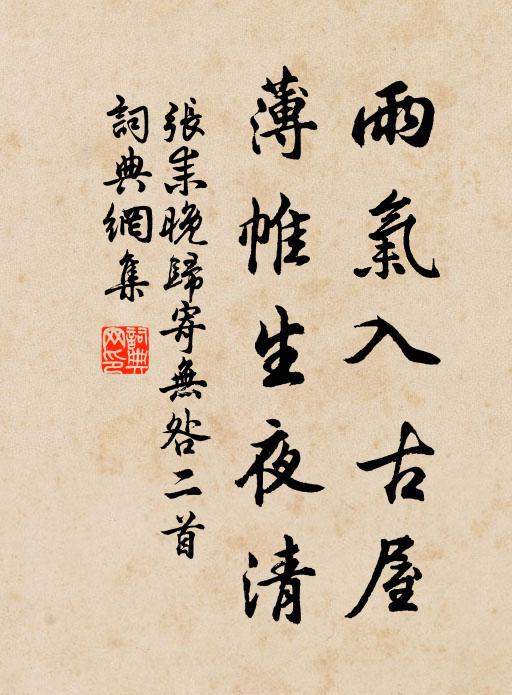 雨氣入古屋
薄帷生夜清
張耒晚歸寄無咎二首
詞典網集
詞典網印